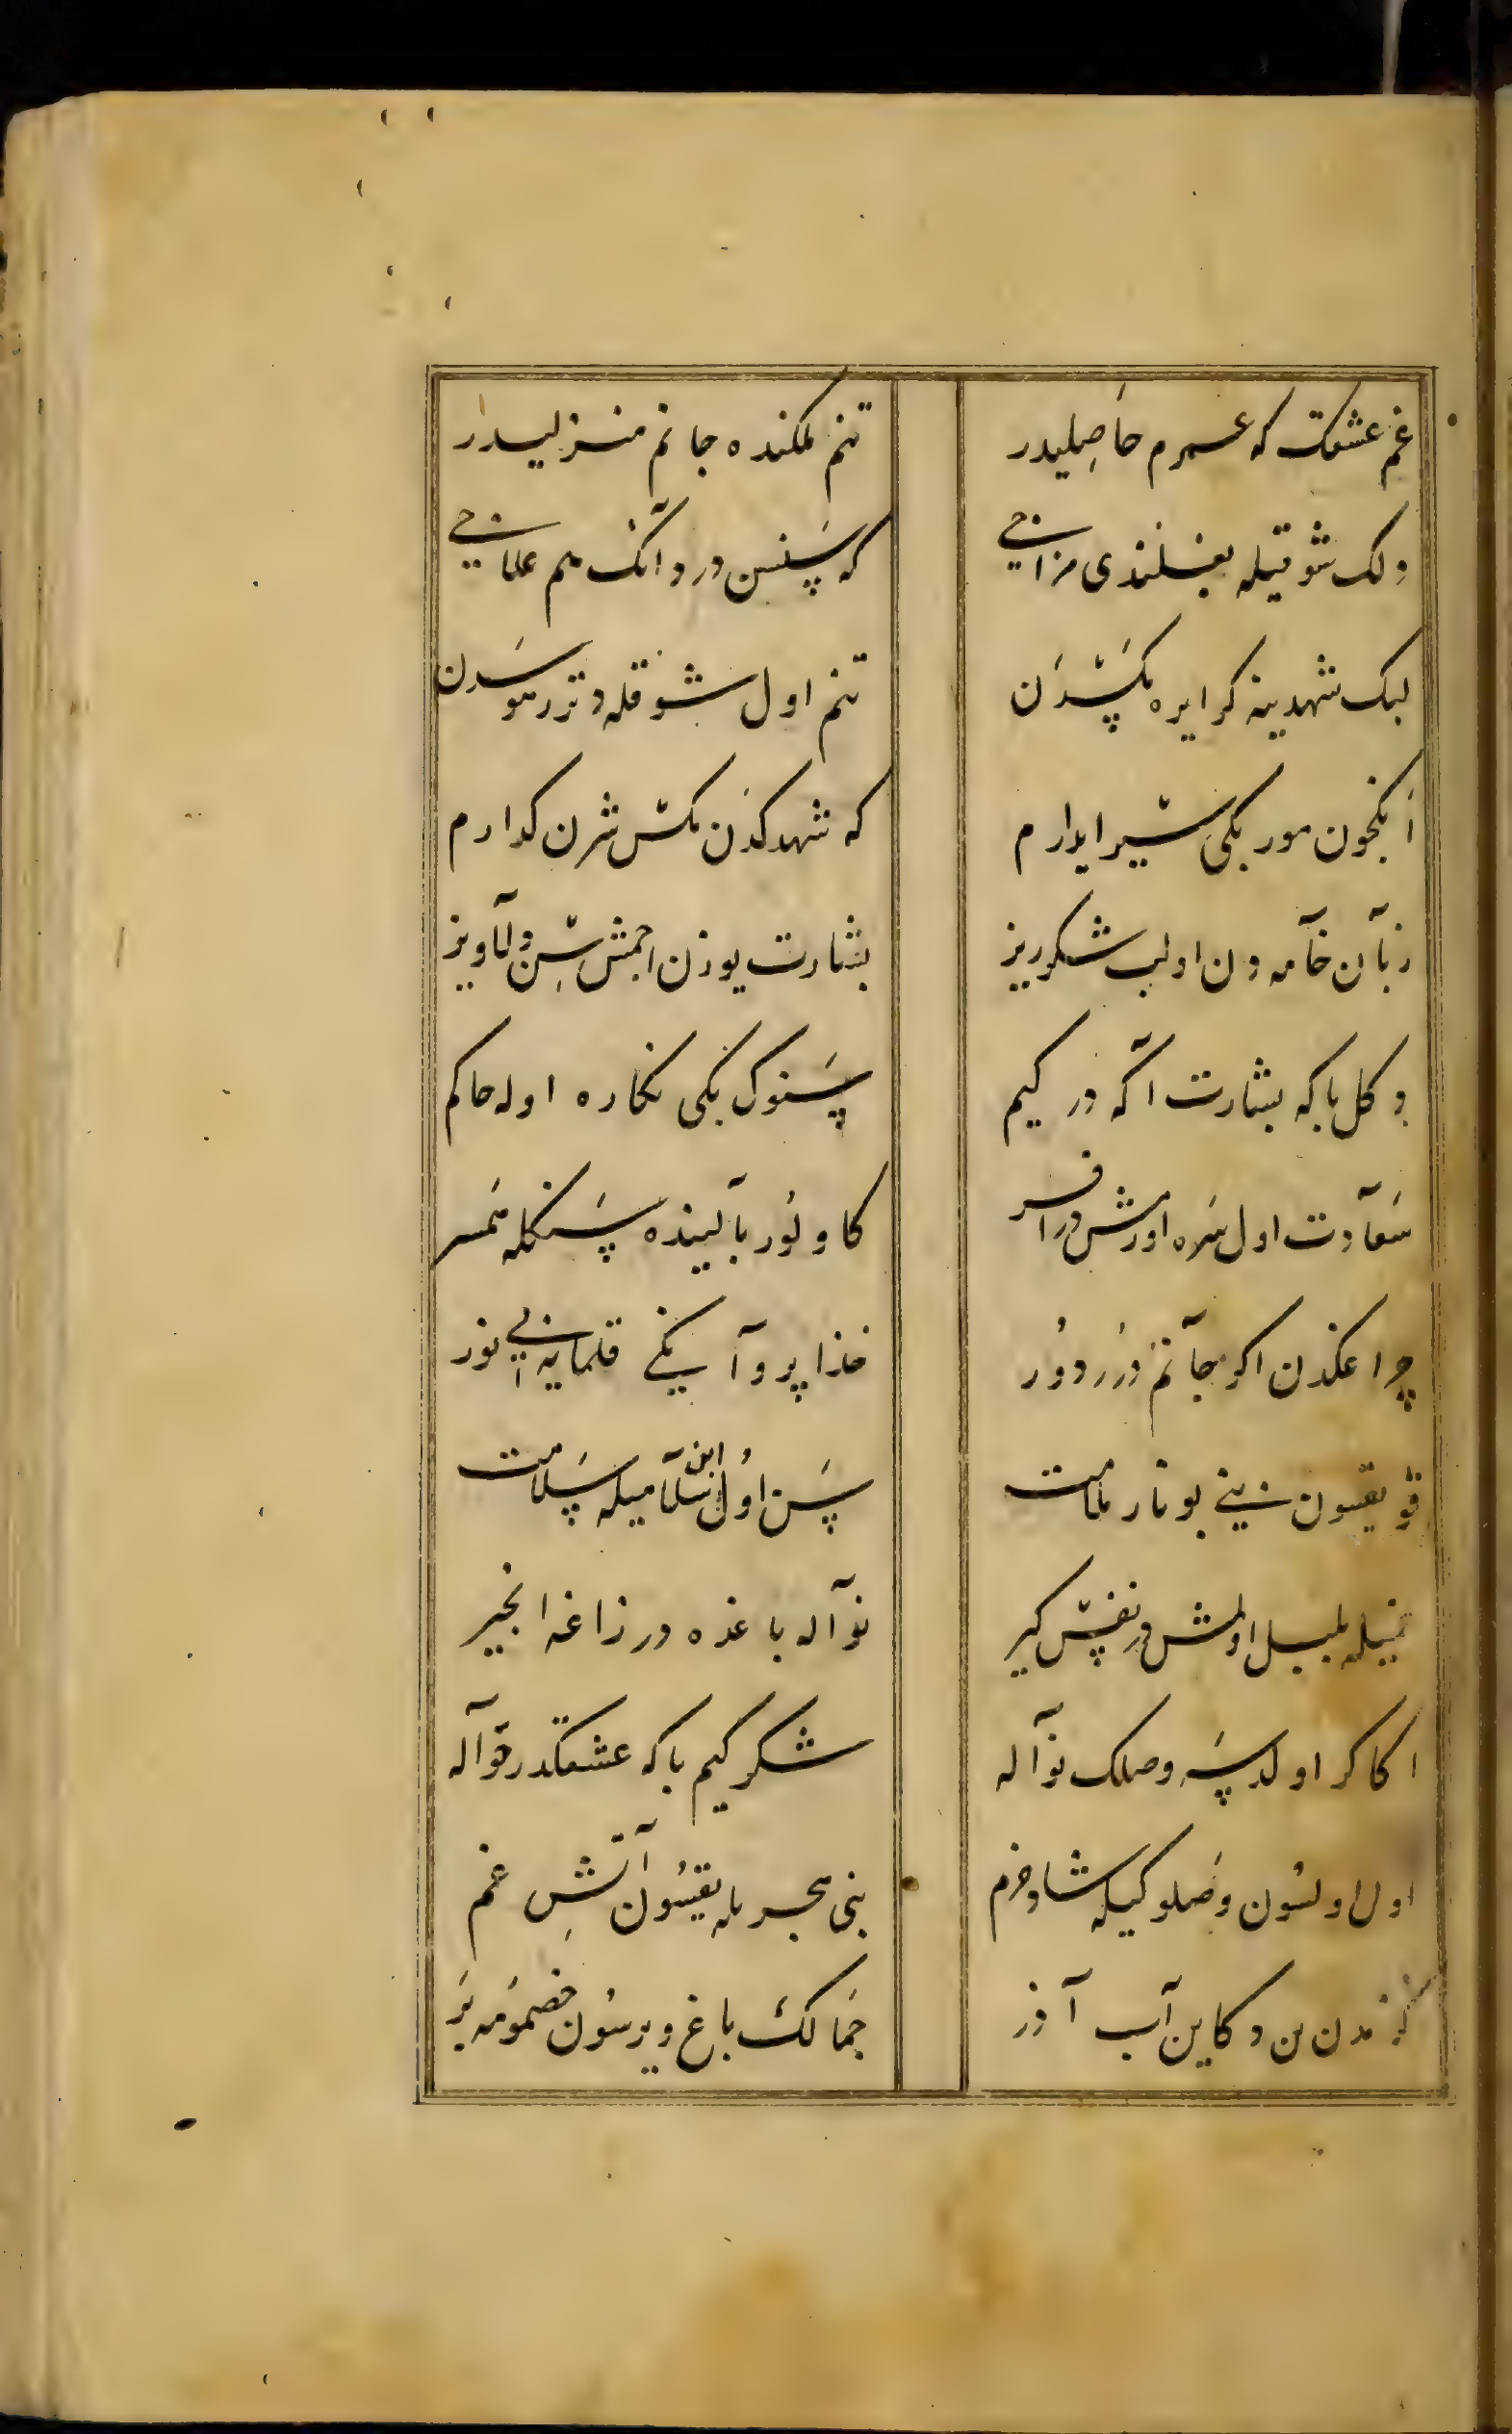 غم عشقت که عمرم حاصلیدر تنم ملکنده جانم منزلیدر
دلک شوقیله بغلندی مزاجی که سنسن درد آنک هم علاجی
لبک شهدینه کر ایره مکسدن تنم اول شوقله دتر هوسدن
انکچون مور بکی سیر ایدارم که شهدکدن مکس شرن کدارم
زبان خامه دن اولب شکرریز بشارت یوزن اچمش سن دلاویز
دکل باکه بشارت اکه در کیم سنوک بکی نکاره اوله حاکم
سعادت اول سره اورمش در افسر کا و نور بالینده سنکله همسر
چراغکدن اکر جانم در دور خذا پروآ نیکی قلمایه ایی نور
قو یقسون بنی بو نار ملامت سن اول ابن سلامیله سلامت
بیله بلبل اولمش در نفس کیر نوآله باغده در زاغه انجیر
اکا کر اولدیسه وصلک نوآله شکر کیم باکه عشقکدر قوآله
اول اولسون وصلوکیله شاد و خرم بنی هجر یله یقسون آتش غم
دن بن دکاین آب آذر جمالک باغ ویرسون خصمومه بر